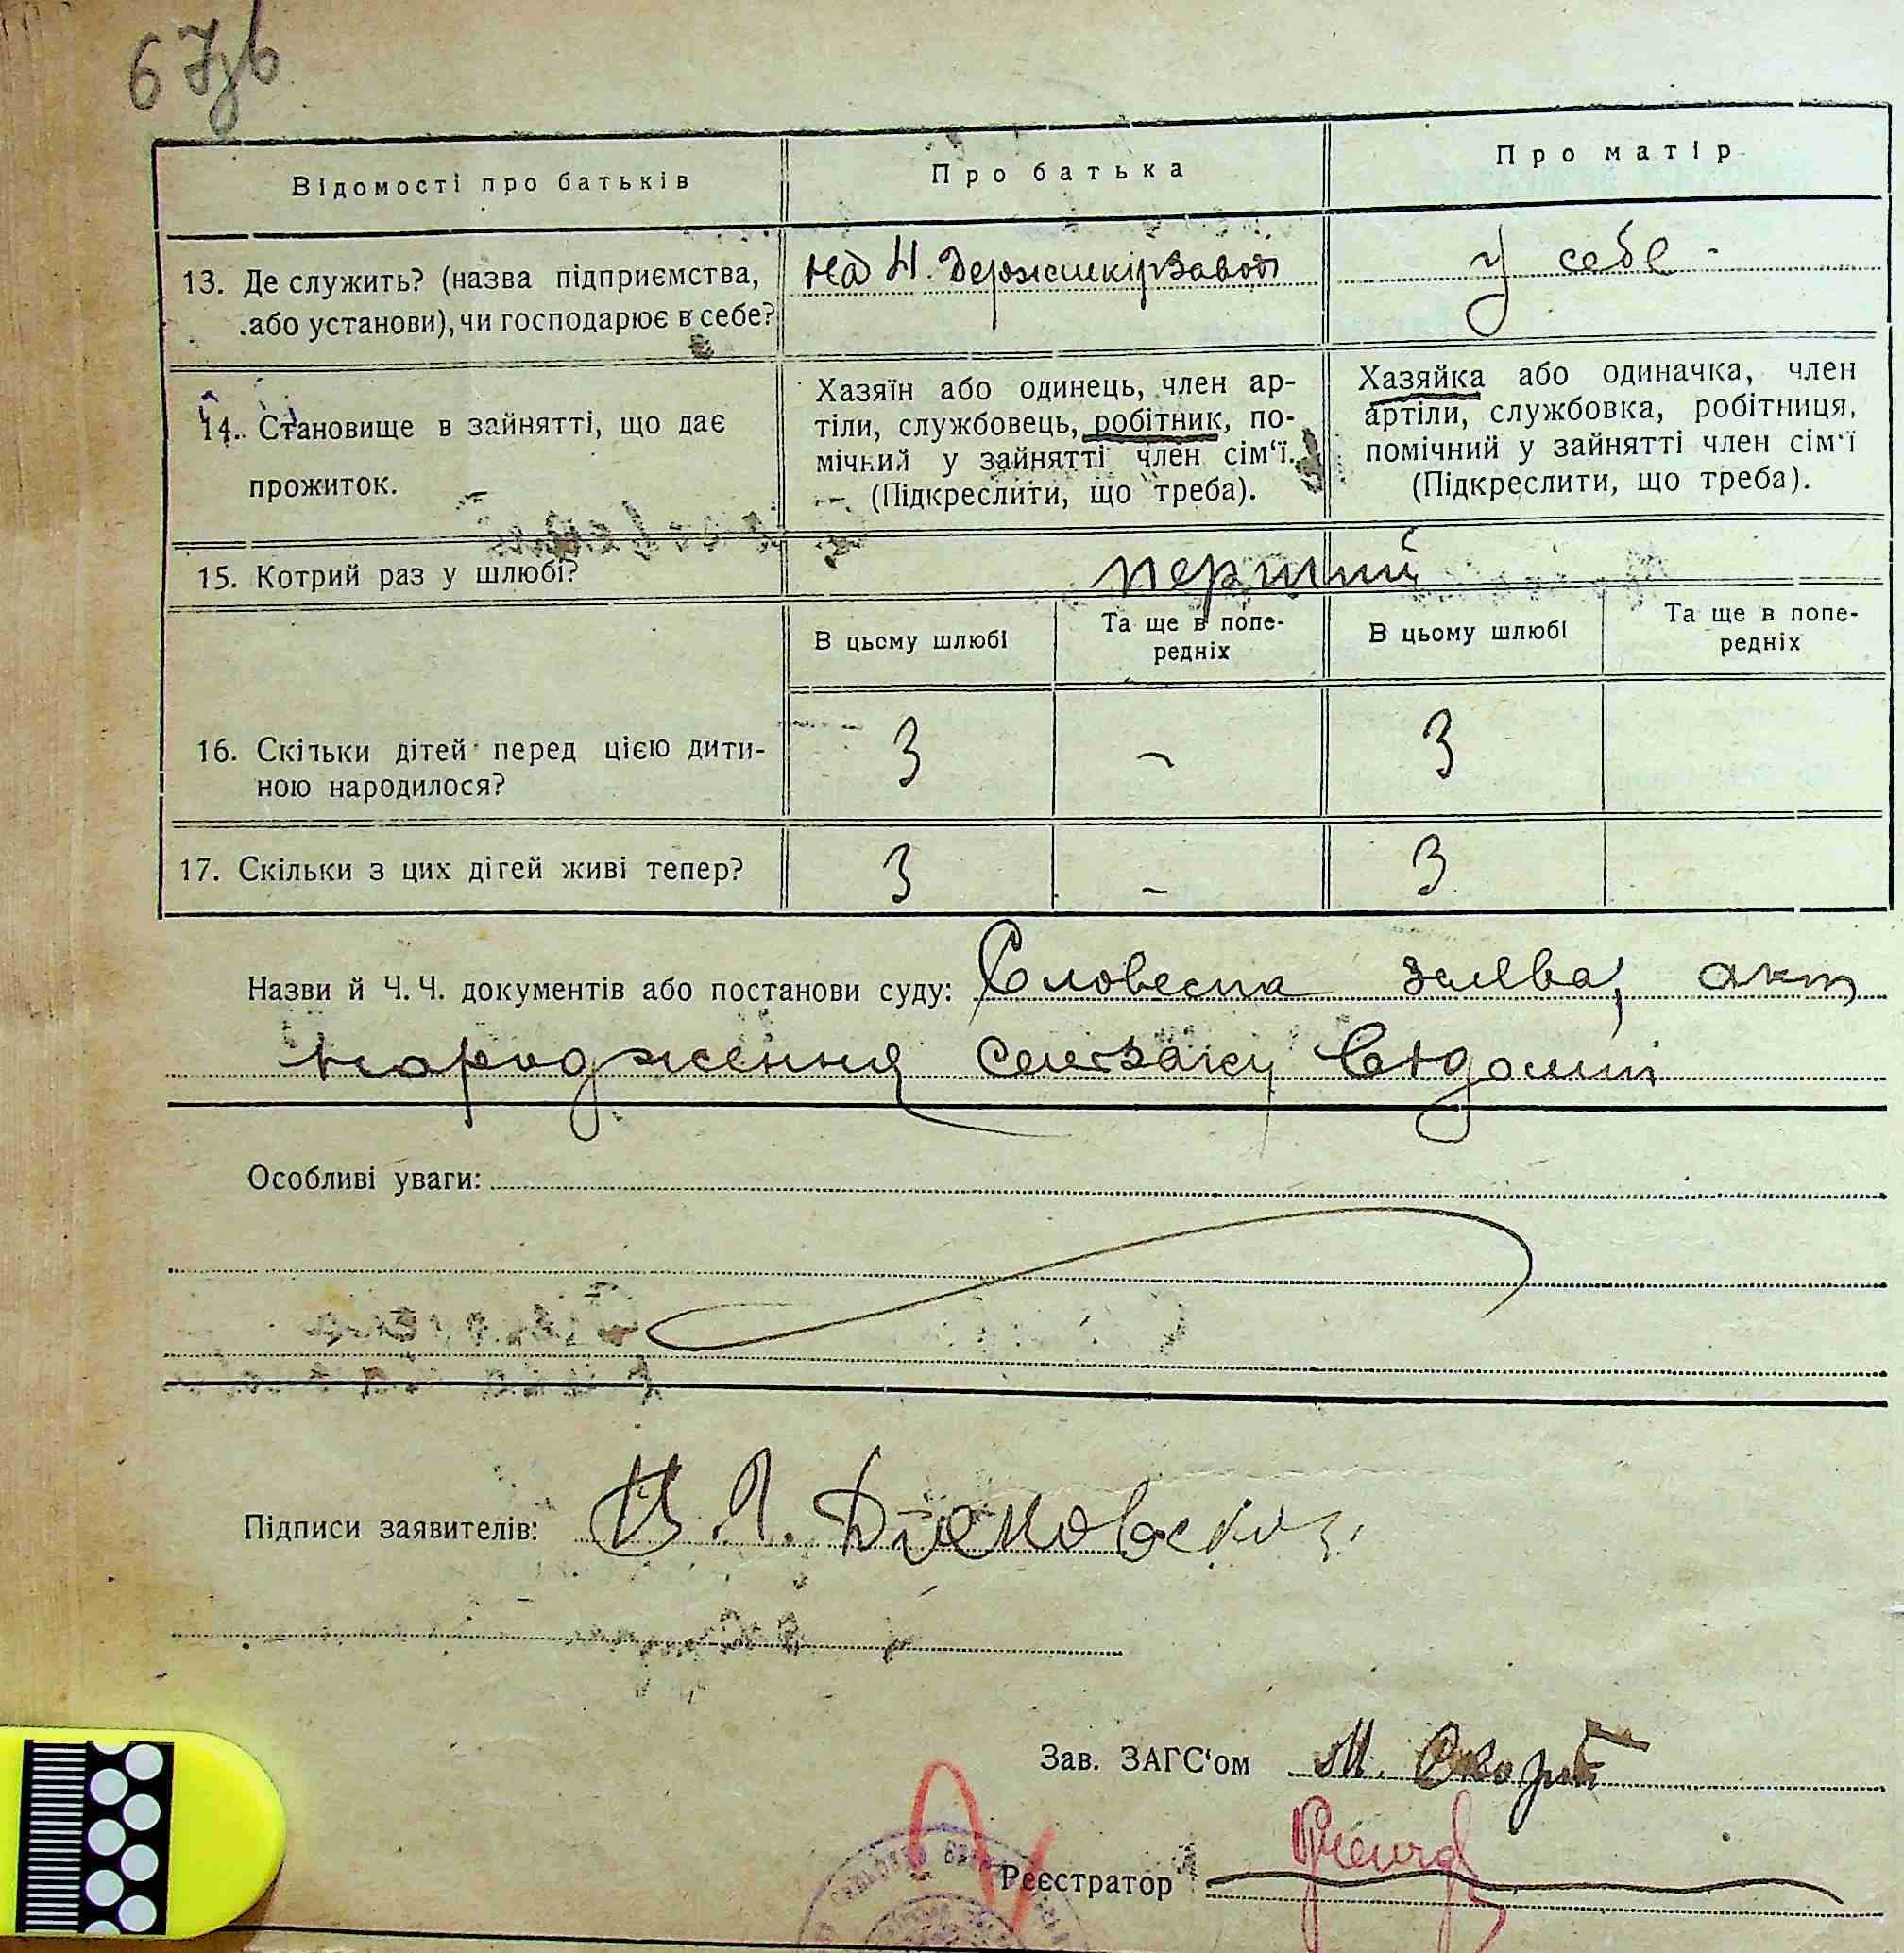 67зв
Відомості про батьків
Про батька
Про матір
13. Де служить? (назва підприємства,
або установи), чи господарює в себе?
на Н. Держшкірзаводі
у себе
14. Становище в зайнятті, що дає
прожиток.
Хазяїн або одинець, член ар-
тіли, службовець, робітник, по-
мічний у зайнятті член сім‘ї.
(Підкреслити, що треба).
Хазяйка або одиначка, член
артіли, службовка, робітниця,
помічний у зайнятті член сім‘ї
(Підкреслити, що треба).
15. Котрий раз у шлюбі?
перший
В цьому шлюбі
Та ще в попе-
редніх
В цьому шлюбі
Та ще в попе-
редніх
16. Скільки дітей перед цією дити-
ною народилося?
3 - 3
17. Скільки з цих дітей живі тепер?
3 - 3
Назви й Ч. Ч. документів або постанови суду: Словесна заява, акт
народження
Особливі уваги:
Підписи заявителів:
Зав. ЗАГС‘ом М.
Реєстратор